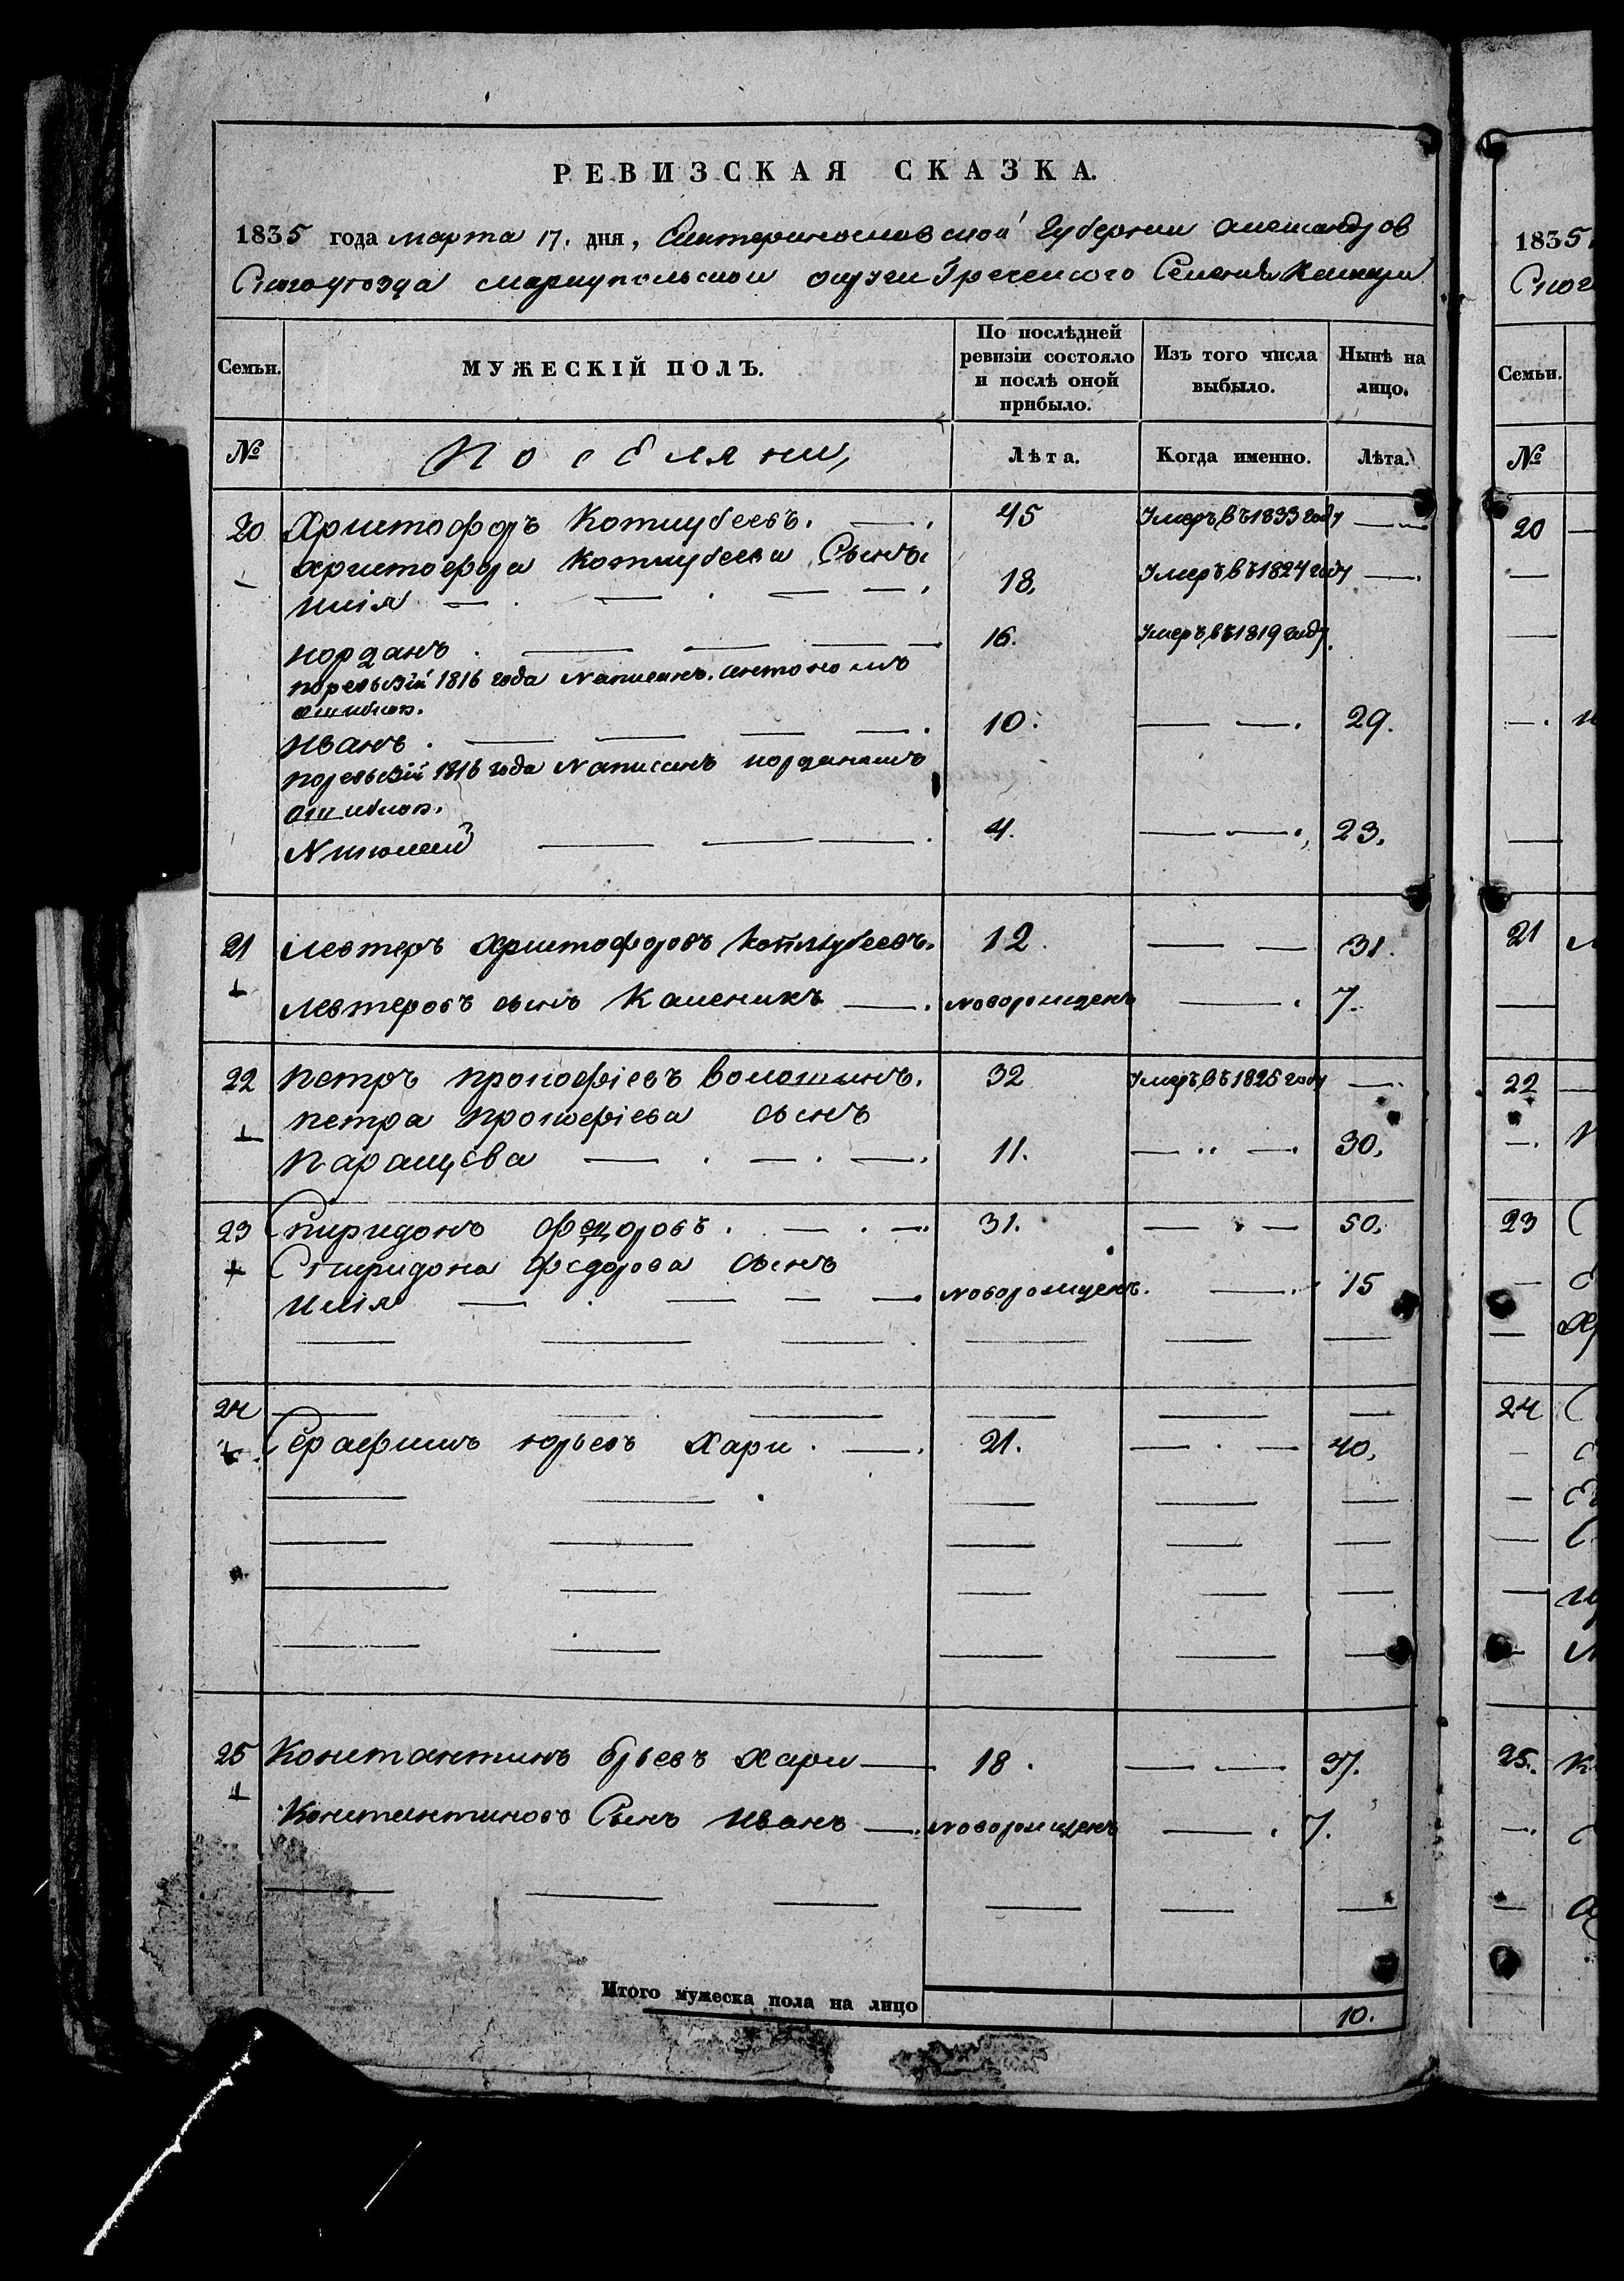 РЕВИЗСКАЯ СКАЗКА.
1835 года марта 17. дня, Екатеринославской Губернии Александров
Скаго уезда Мариупольской округи Греческого Селения
Семьи. МУЖЕСКІЙ ПОЛЪ. По послѣдней ревизіи состояло и послѣ оной прибыло. Изъ того числа выбыло. Нынѣ на лицо.
№ Поселяни, Лѣта. Когда именно. Лѣта.
20 Христофоръ Котлубеевъ. 45 Умеръ въ 1833 году
Христофора Котлубеева Сынъ
Илія 18, Умеръ въ 1824 году
Іорданъ 16. Умеръ въ 1819 году.
по ревизіи 1816 года написанъ. антономъ
ошибкою.
Иванъ. 10. 29.
по ревизіи 1816 года написанъ іорданомъ
ошибкою.
Николай 4. 23.
21 Левтеръ Христофоровъ Котлубеевъ. 12. 31.
Левтеровъ сынъ Каленикъ новорожденъ 7.
22 Петръ Прокофіевъ Волошинъ. 32 Умеръ въ 1825 году
Петра Прокофіева сынъ
11. 30,
23 Спиридонъ Федоровъ. 31. 50.
Спиридона Федорова сынъ
Илія новорожденъ. 15
24
Серафимъ Юрьевъ Хари. 21. 40,
25 Константинъ Юрьевъ Хари 18. 37.
Константиновъ Сынъ Иванъ новорожденъ 7.
Итого мужеска пола на лицо 10.
1835
Семьи.
№
20
21
22
23
24
25.